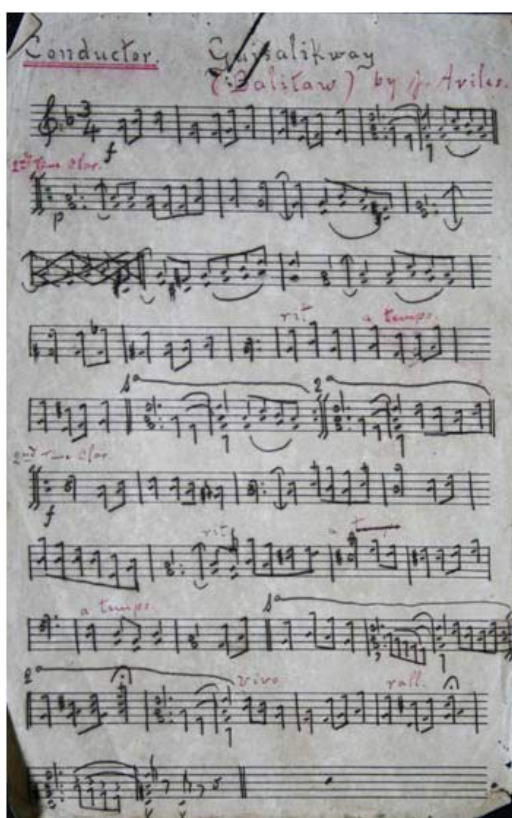 Conductor. Guisalikway
(Balitaw) by J. Aviles.
3
4
f
2nd time Clar.
p
rit
a tempo.
1a 2a
2nd time Clar.
f
rit
a tempo. 1a
2a vivo rall.